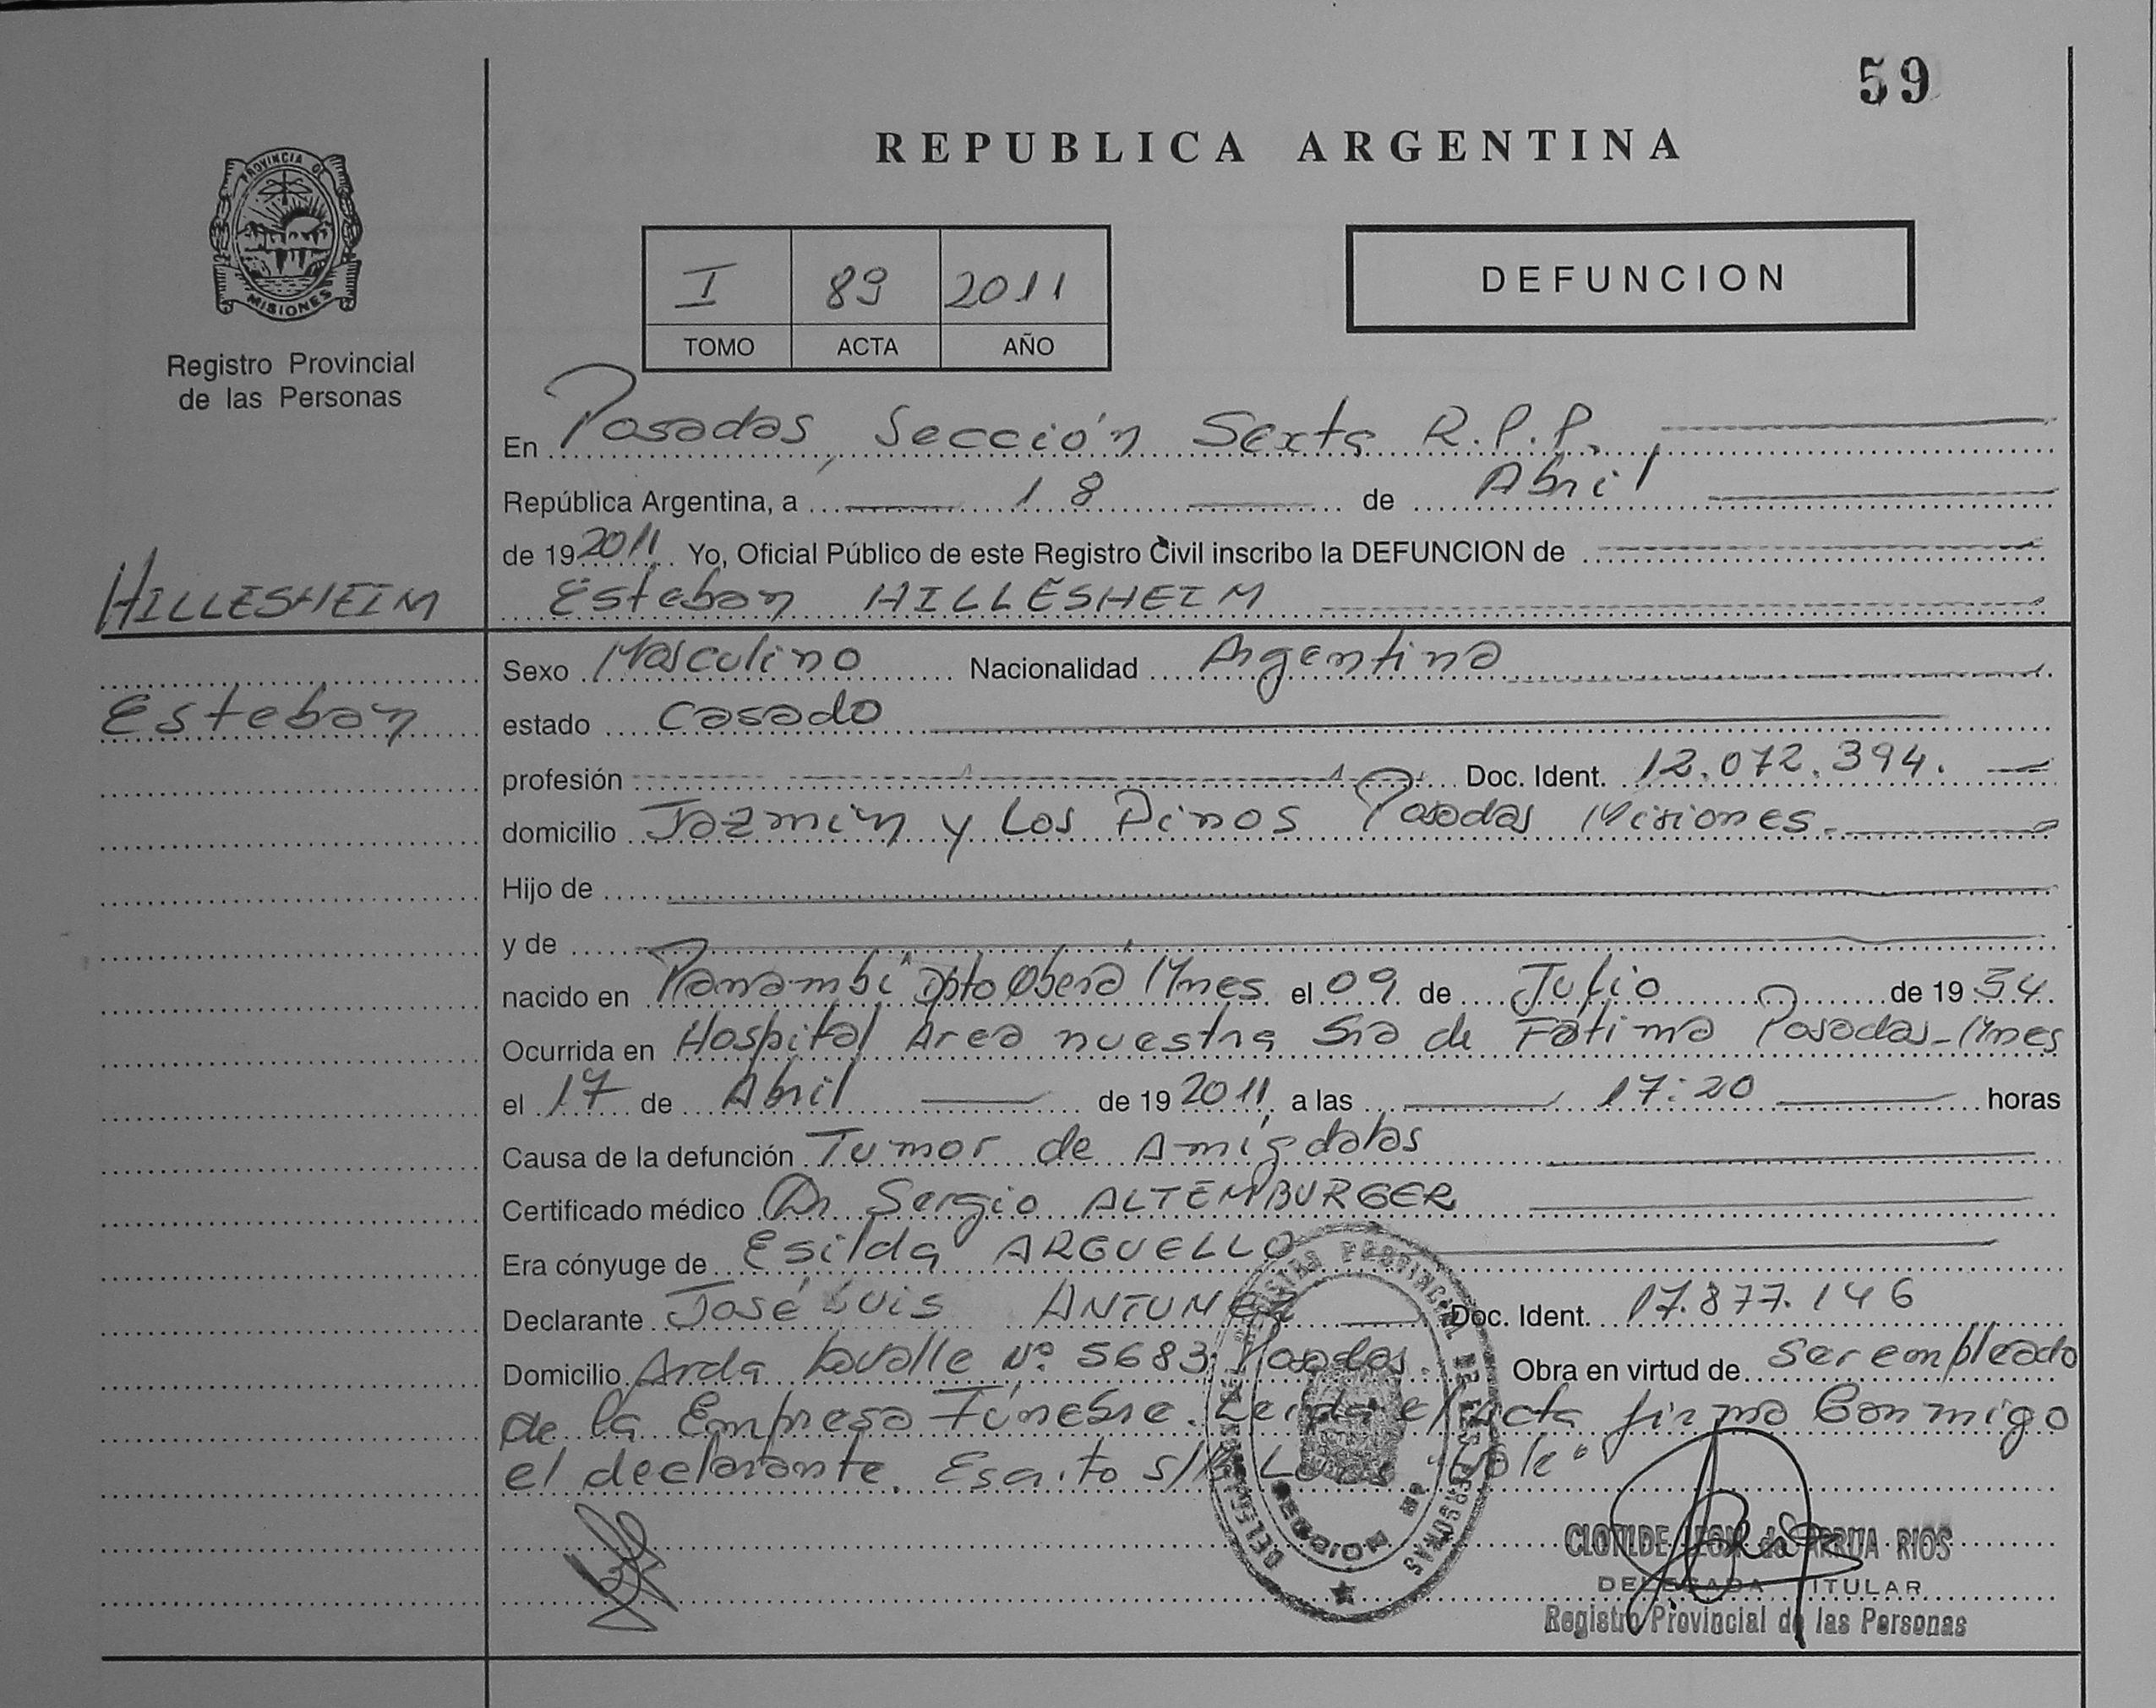 59
REPUBLICA ARGENTINA
PROVINCIA DE
MISIONES
Registro Provincial
de las Personas
I 89 2011
TOMO ACTA AÑO
DEFUNCION
En Posadas, Sección Sexta R.P.P.,
República Argentina, a 18 de Abril
de 19 2011 Yo, Oficial Público de este Registro Civil inscribo la DEFUNCION de
HILLESHEIM
Esteban HILLESHEIM
Esteban
Sexo Masculino Nacionalidad Argentina
estado Casado
profesión Doc. Ident. 12.072.394.
domicilio Jazmin y Los Pinos Posadas Misiones
Hijo de
y de
nacido en Panambi Dpto Oberá Mnes el 09 de Julio de 19 54
Ocurrida en Hospital Area nuestra Sra de Fátima Posadas-Mnes
el 17 de Abril de 19 2011, a las 17:20 horas
Causa de la defunción Tumor de Amígdalas
Certificado médico Dr Sergio ALTEMBURGER
Era cónyuge de Esilda ARGUELLO
Declarante José Luis ANTUNEZ Doc. Ident. 17.877.146
Domicilio Avda Lavalle Nº 5683 Posadas. Obra en virtud de ser empleado
de la Empresa Fúnebre. Leida el Acta firma Conmigo
el declarante. Escrito s/R "Vale"
CLOTILDE LEON de ARRUA RIOS
DELEGADA TITULAR
Registro Provincial de las Personas